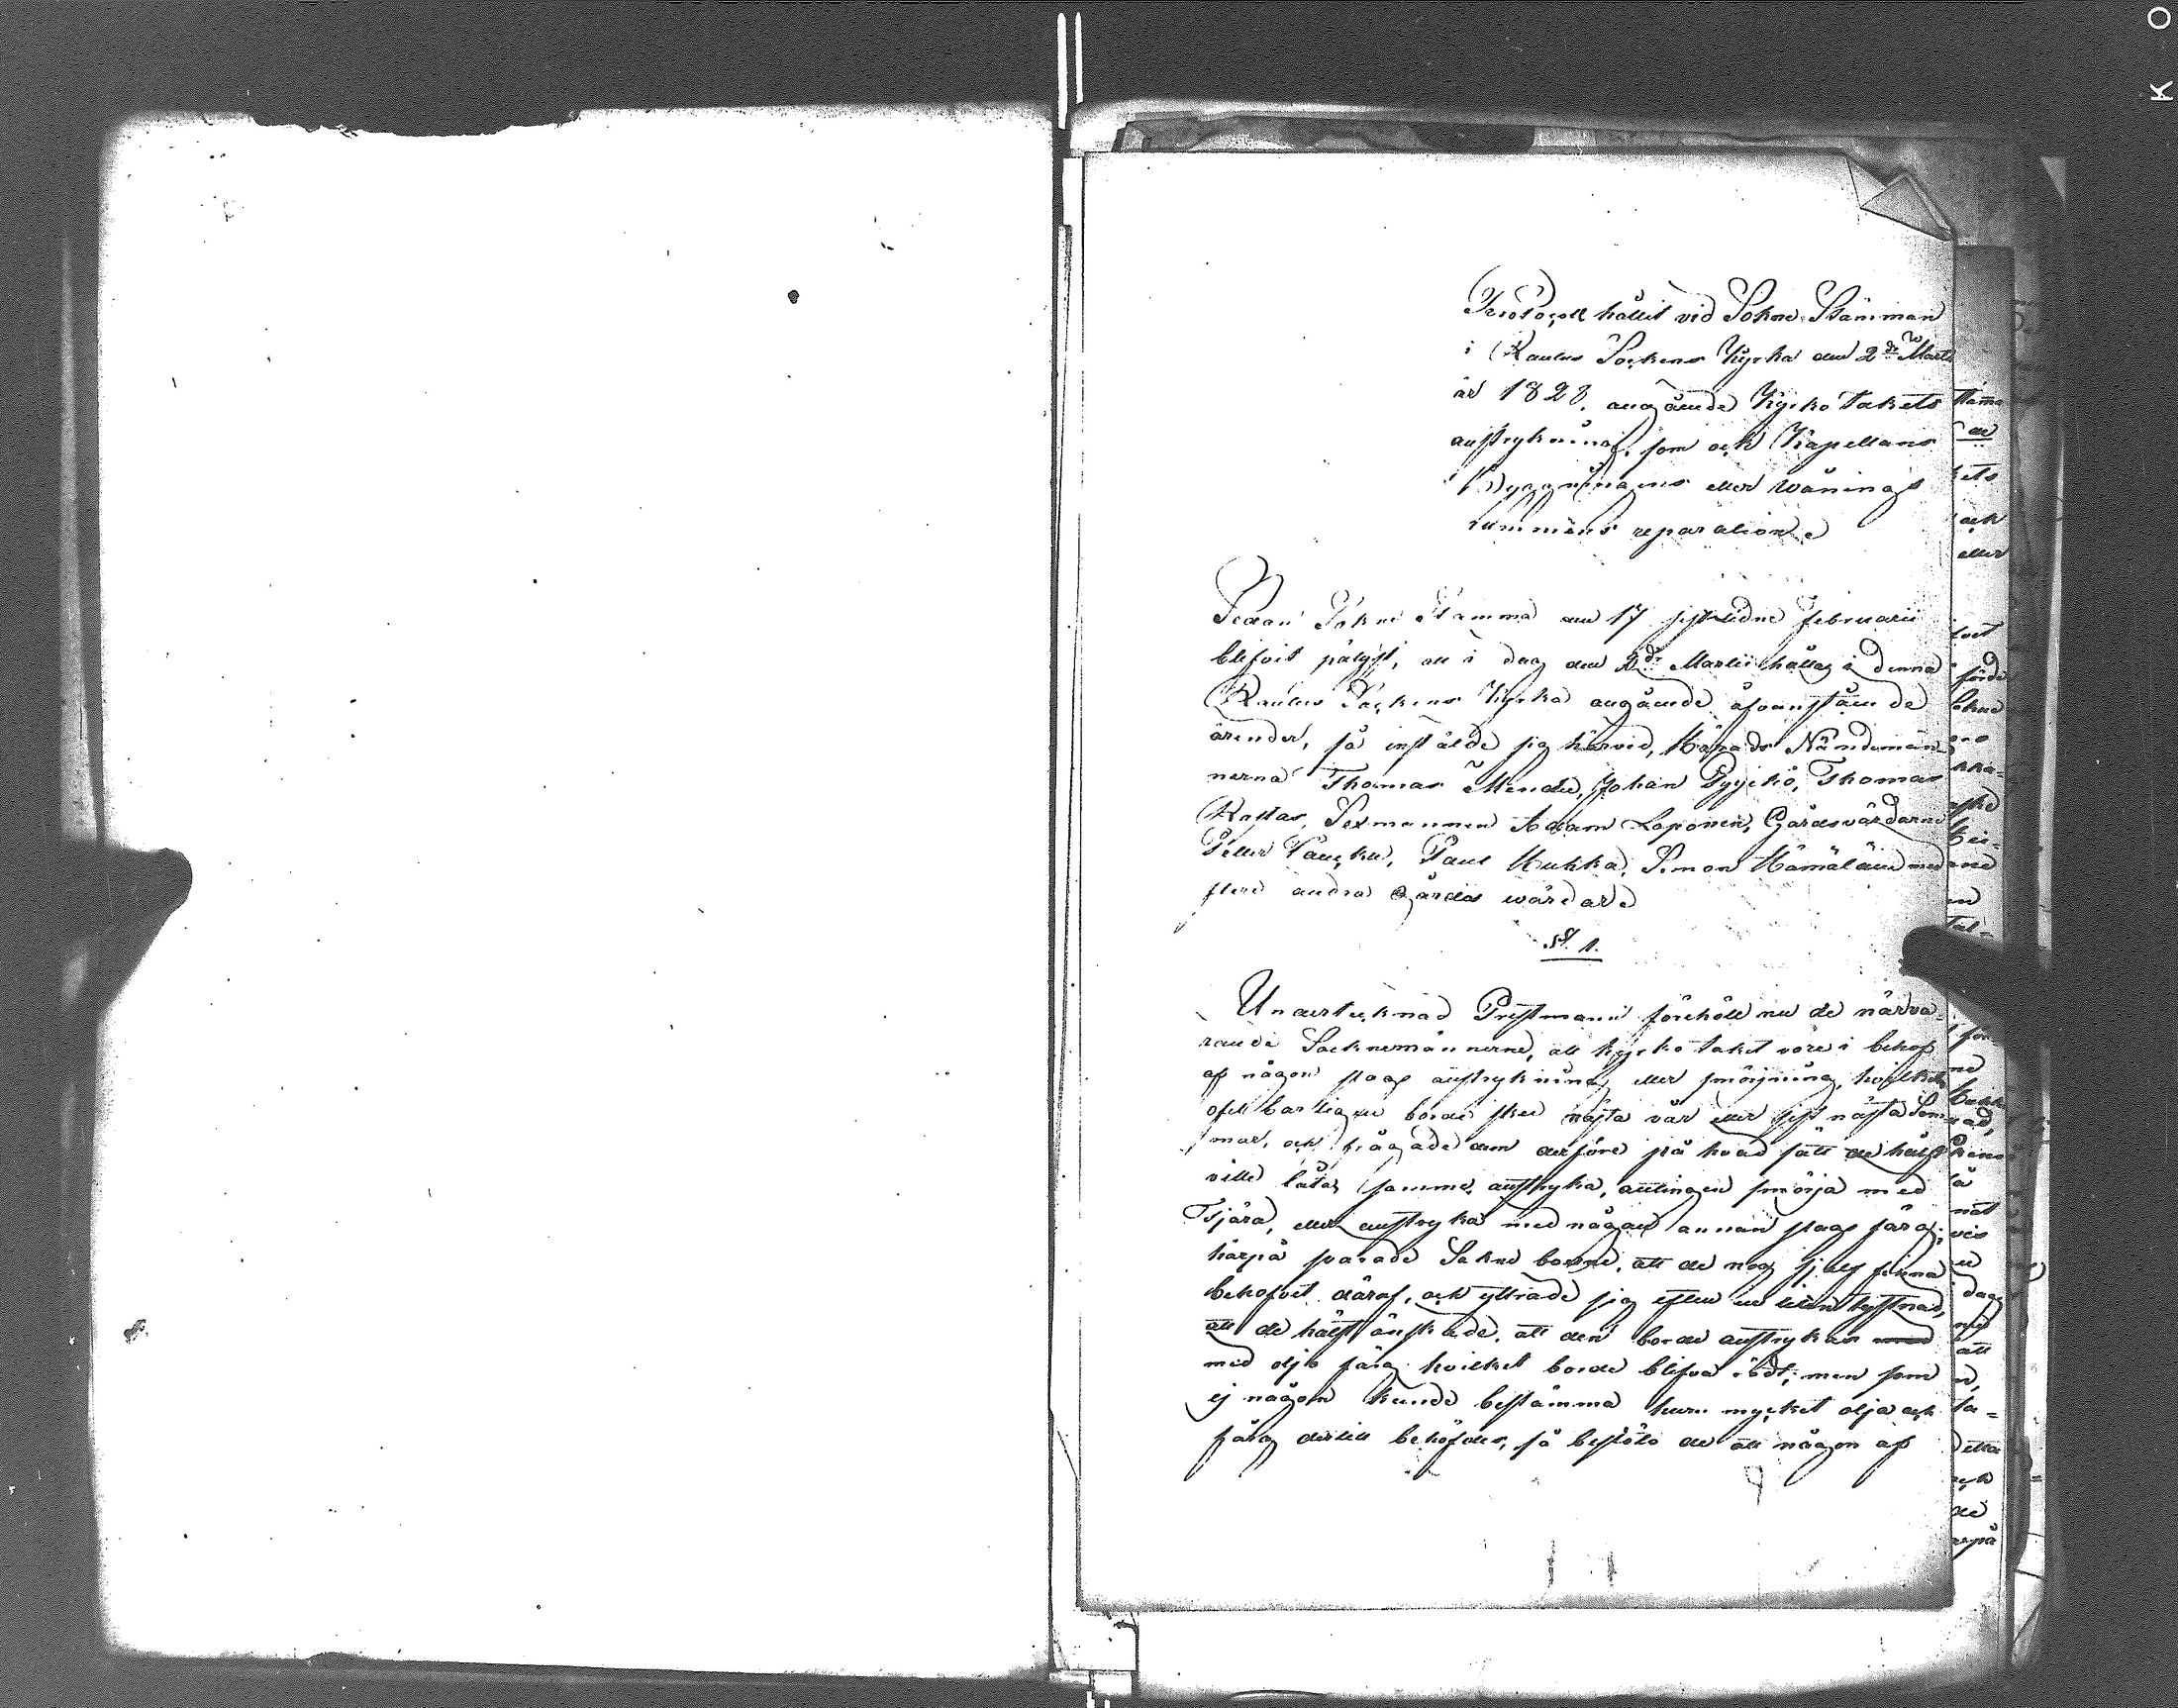 Protocoll hållit vid Sokne Stämman
i Rautus Sockens Kyrka den 2de Martii
år 1828. angående Kyrko takets
anstrykning, som ock Kapellans
Byggningens eller Wånings
rummens reparation
Sedan Sokne Stämma den 17 sistledne Februarii
blifvit pålyst, att i dag den 2de Martii hållas i denna
Rautus Sockens Kyrka angående ofvanstående
ärender, så instälde sig härvid, Härads Nämdemän
nerna Thomas Mendu, Johan Pyyckö, Thomas
Rastas, Sexmannen Adam Loponen, Gårdsvärdarne
Petter Paucku, Paul Kukka, Simon Hämäläin med
flere andra Gårds wärdare
§ 1.
Undertecknad Prestmann föreholl nu de närva-
rande Socknemännerne, att kyrko taket vore i behof
af någon slags anstrykning eller smörjning, hvilket
ofelbarligen borde ske nästa vår eller sist nästa Som
mar, och frågade dem derföre på hvad sätt de hälst
ville låta samme anstryka, antingen smörja med
Tjära, eller anstryka med någon annan slags färg;
härpå svarade Sokne boerne, att de nog sjelf finna
behofvet däraf, och yttrade sig efter en liten tystnad,
att de hälst önskade, att den borde anstrykas
med olje färg hvilket borde blifva rödt; men som
ej någon kunde bestämma huru mycket olja och
färg dertill behöfdes, så beslöto de att någon af